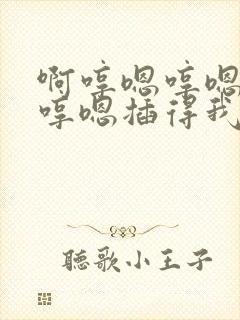 啊哼嗯哼嗯
哼嗯插得我
聽歌小王子